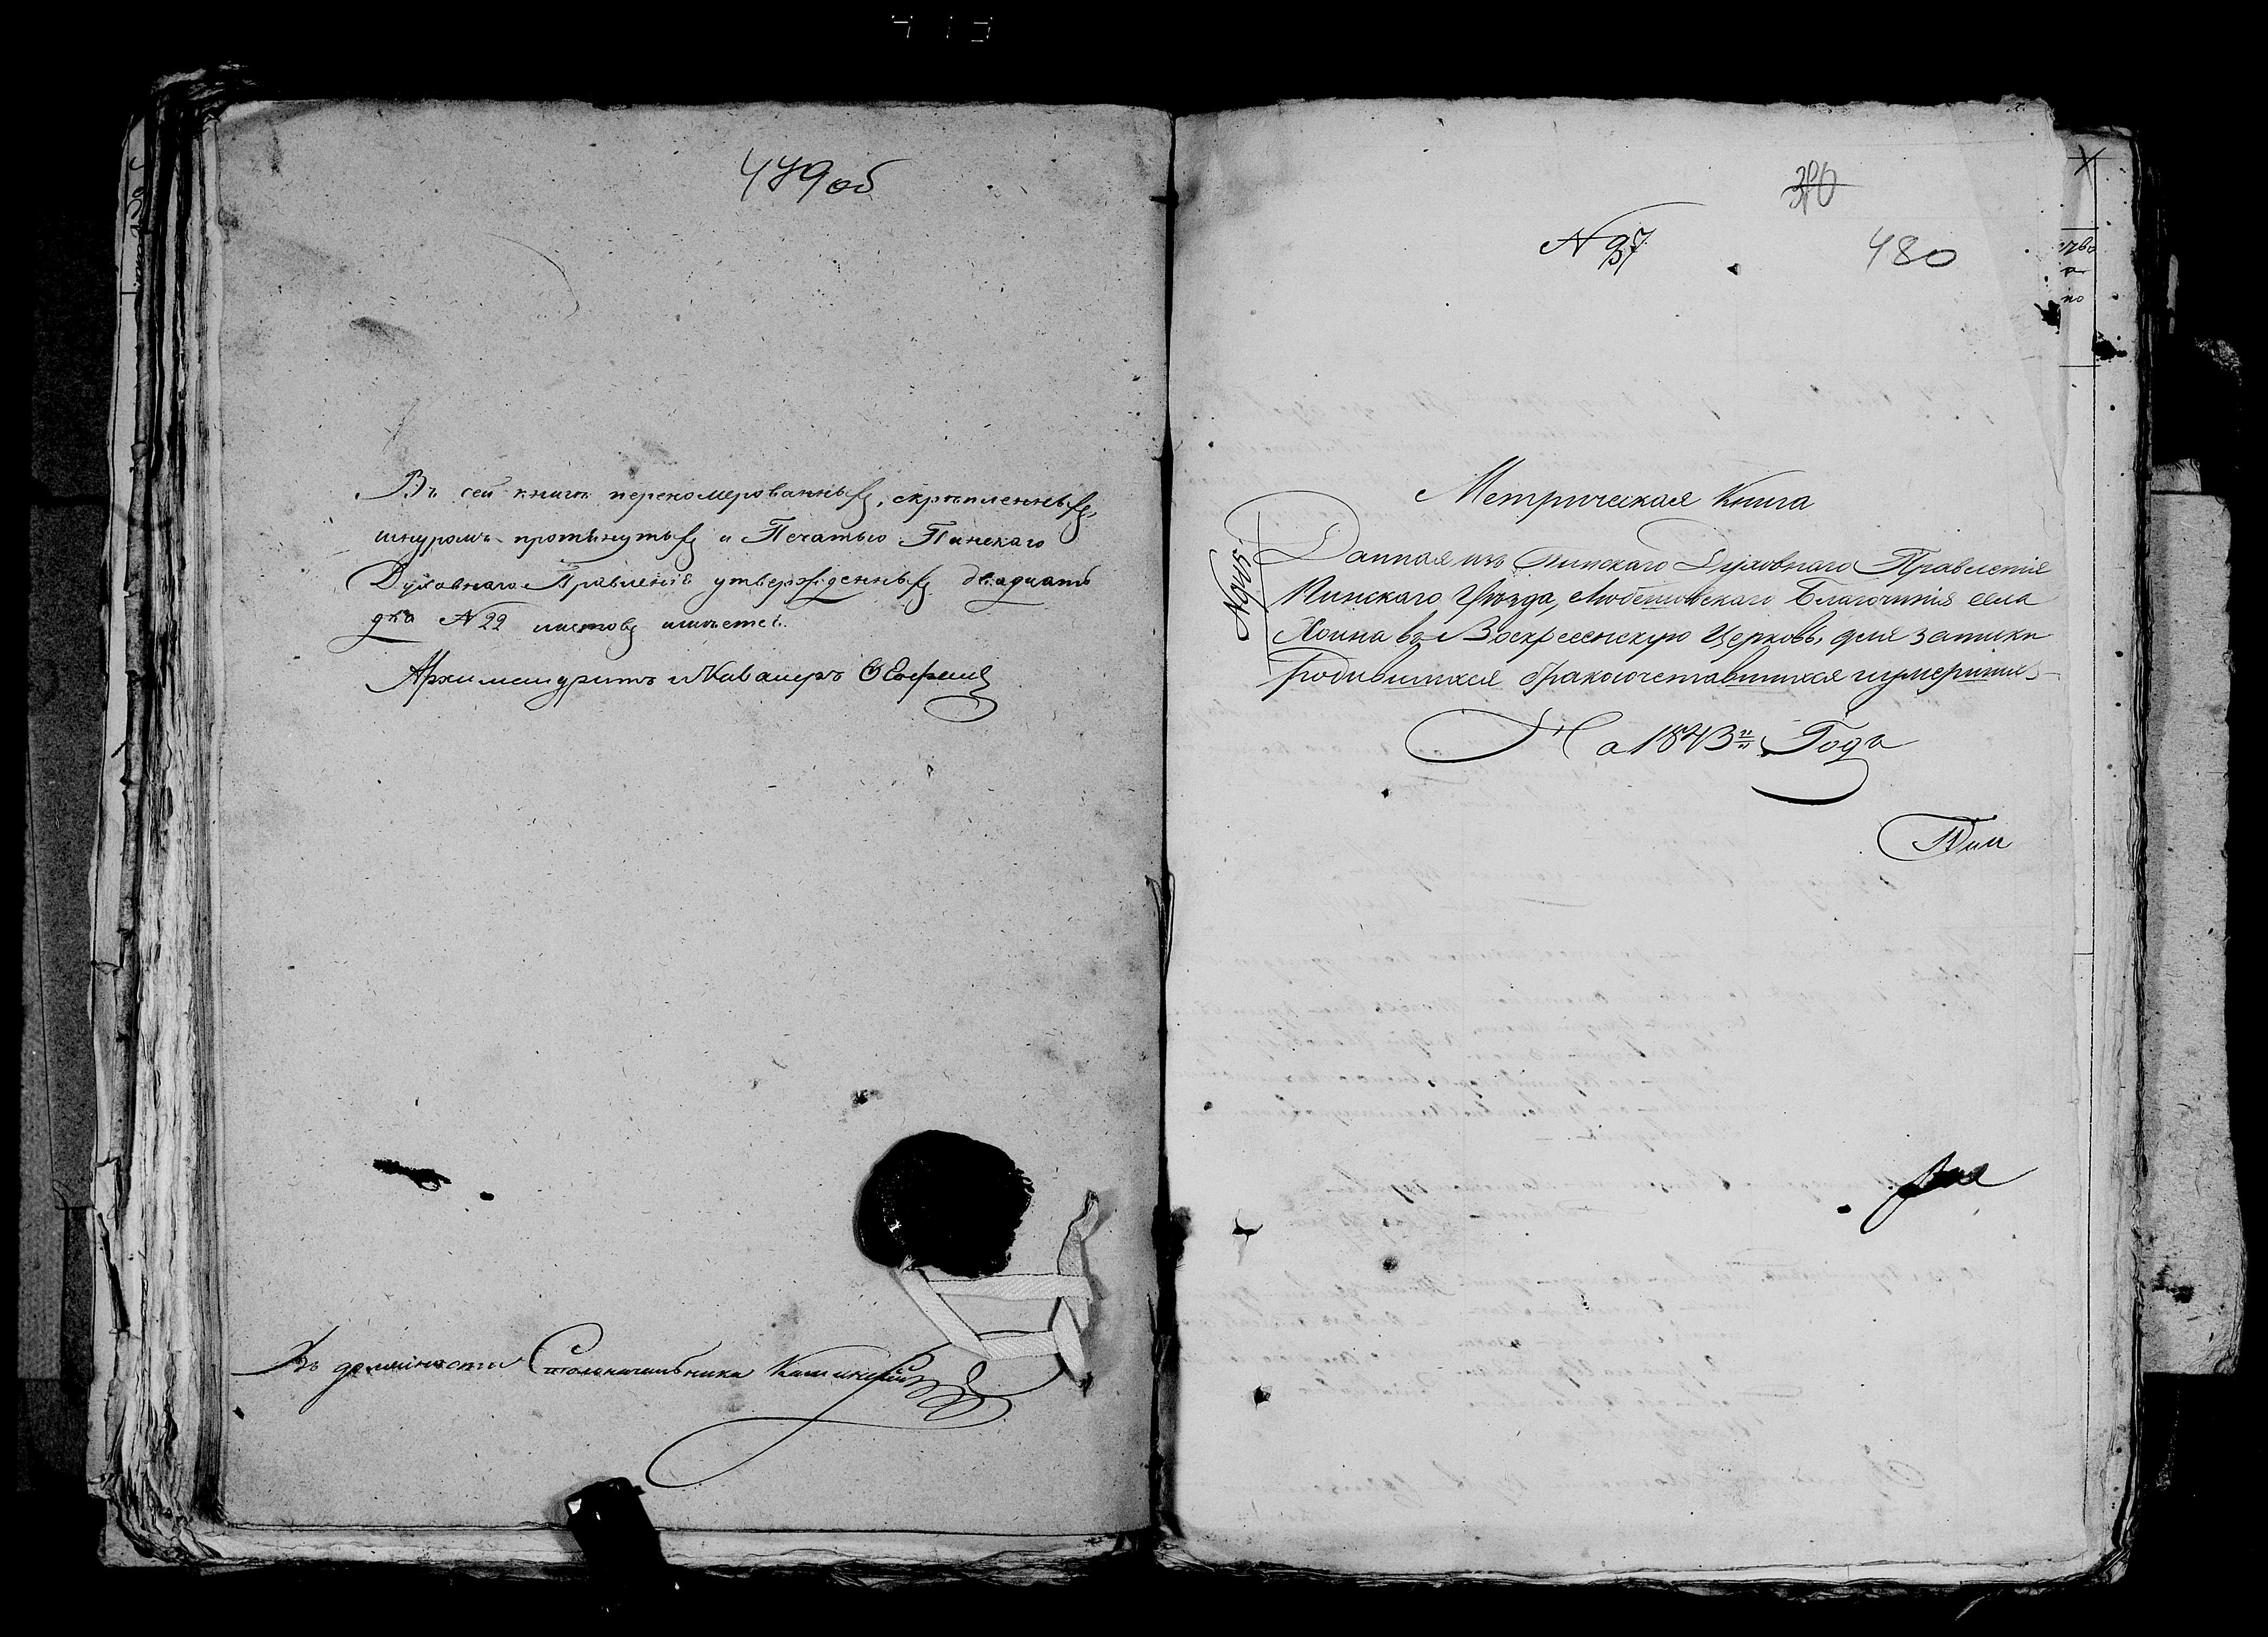 479 об
Въ сей книгѣ перекомерованныхъ, скрѣпленныхъ,
шнуромъ протянутыхъ и Печатью Пинскаго
Духовнаго Правленія утвержденныхъ двадцать
два № 22 листовъ имѣется.
Архимандритъ и Кавалеръ
Въ должности Столоначальника
390
№ 97
480
Метрическая Книга
Данная изъ Пинскаго Духовнаго Правленія
Пинскаго Уѣзда, Любешовскаго Благочинія села
Хоина въ Воскресенскую Церковь, для записки
Родившихся бракосочетавшихся и умершихъ
На 1843й Годъ
Пин